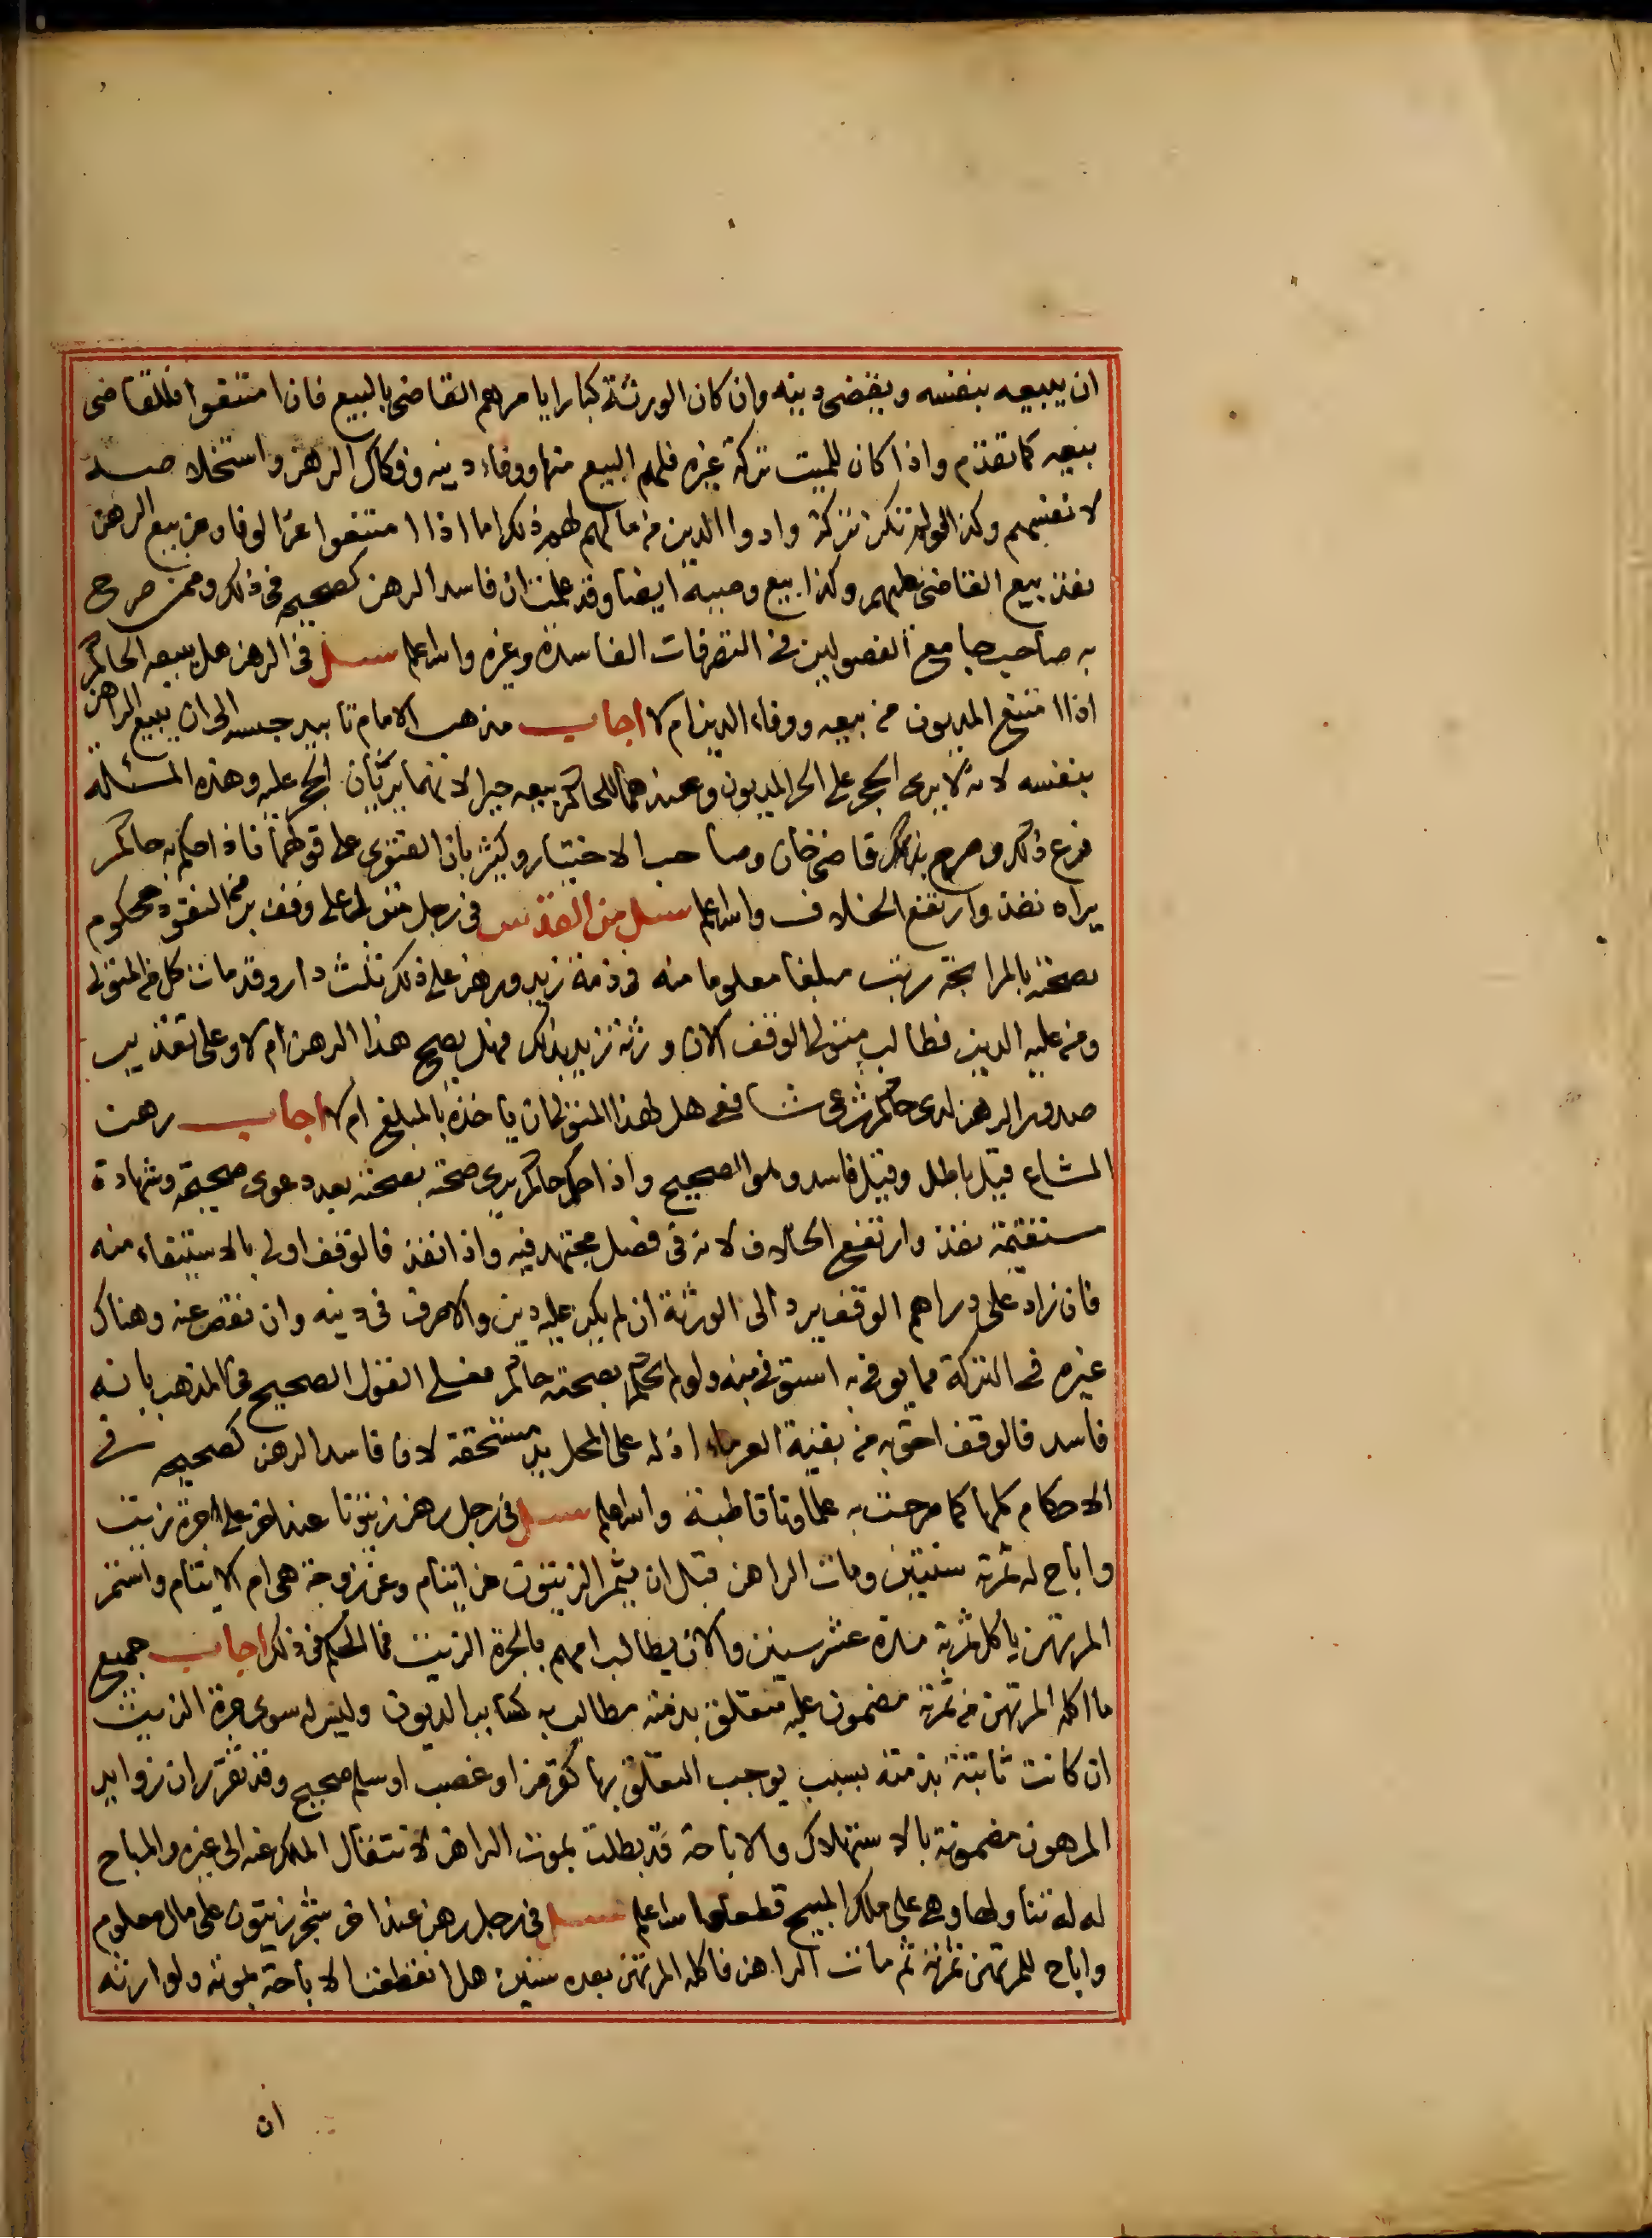 ان يبيعه بنفسه ويقضى دينه وان كان الورثة كبارا يامرهم القاضى بالبيع فان امتنعوا فللقاضى
بيعه كما تقدم واذا كان للميت تركة غيره فلهم البيع منها ووفاء دينه وفكاك الرهن واستخلاصه
لانفسهم وكذا لو لم تكن تركة وادوا الدين من مالهم لهم ذلك اما اذا امتنعوا عن الوفا وعن بيع الرهن
نفذ بيع القاضى عليهم وكذا بيع وصيه ايضا وقد علمت ان فاسد الرهن كصحيحه فى ذلك وممن صرح
به صاحب جامع الفصولين فى التصرفات الفاسدة وغيره والله اعلم سئل فى الرهن هل يبيعه الحاكم
اذا امتنع المديون من بيعه ووفاء الدين ام لا اجاب مذهب الامام تابيد حبسه الى ان يبيع الراهن
بنفسه لانه لا يرى الحجر على الحر المديون وعندهما للحاكم بيعه جبرا لانهما يريان الحجر عليه وهذه المسئلة
فرع ذلك وصرح بذلك قاضى خان وصاحب الاختيار وكثير بان الفتوى على قولهما فاذا حكم به حاكم
يراه نفذ وارتفع الخلاف والله اعلم سئل من القدس فى رجل متول على وقف بر من النقود محكوم
بصحته بالمرابحة رتب مبلغا معلوما منه فى ذمة زيد ورهن على ذلك ثلث دار وقد مات كل من المتولى
ومن عليه الدين فطالب متولى الوقف الان ورثة زيد بذلك فهل يصح هذا الرهن ام لا وعلى تقدير
صدور الرهن لدى حاكم شرعى شافعى هل لهذا المتولى ان ياخذه بالمبلغ ام لا اجاب رهن
المشاع قيل باطل وقيل فاسد وهو الصحيح واذا حكم حاكم يرى صحته بصحته بعد دعوى صحيحة وشهادة
مستقيمة نفذ وارتفع الخلاف لانه فى فصل مجتهد فيه واذا نفذ فالوقف اولى بالاستيفاء منه
فان زاد على دراهم الوقف يرد الى الورثة ان لم يكن عليه دين والا صرف فى دينه وان نقص عنه وهناك
غيره فى التركة مما يوفى به استوفى منه ولو لم يحكم بصحته حاكم فعلى القول الصحيح فى المذهب بانه
فاسد فالوقف احق به من بقية الغرماء اذ له على المحل يد مستحقة لانا فاسد الرهن كصحيحه فى
الاحكام كلها كما صرحت به علماؤنا قاطبة والله اعلم سئل فى رجل رهن زيتونا عند اخر على جرة زيت
واباح له ثمرته سنتين ومات الراهن قبل ان يثمر الزيتون عن ايتام وعن زوجة هى ام الايتام واستمر
المرتهن ياكل ثمرته مدة عشر سنين والان يطالب امهم بالجرة الزيت فما الحكم فى ذلك اجاب جميع
ما اكله المرتهن من ثمرته مضمون عليه متعلق بذمته مطالب به كساير الديون وليس له سوى جرة الزيت
ان كانت ثابتة بذمته بسبب يوجب التعلق بها كقرض او غصب او سلم صحيح وقد تقرر ان زوايد
المرهون مضمونة بالاستهلاك والاباحة قد بطلت بموت الراهن لانتقال الملك عنه الى غيره والمباح
له له تناولها وهى على ملك المبيح قطعا والله اعلم سئل فى رجل رهن عند اخر شجر زيتون على مال معلوم
واباح للمرتهن ثمرته ثم مات الراهن فاكله المرتهن بعده سنين هل انقطعت الاباحة بموته ولوارثه
ان